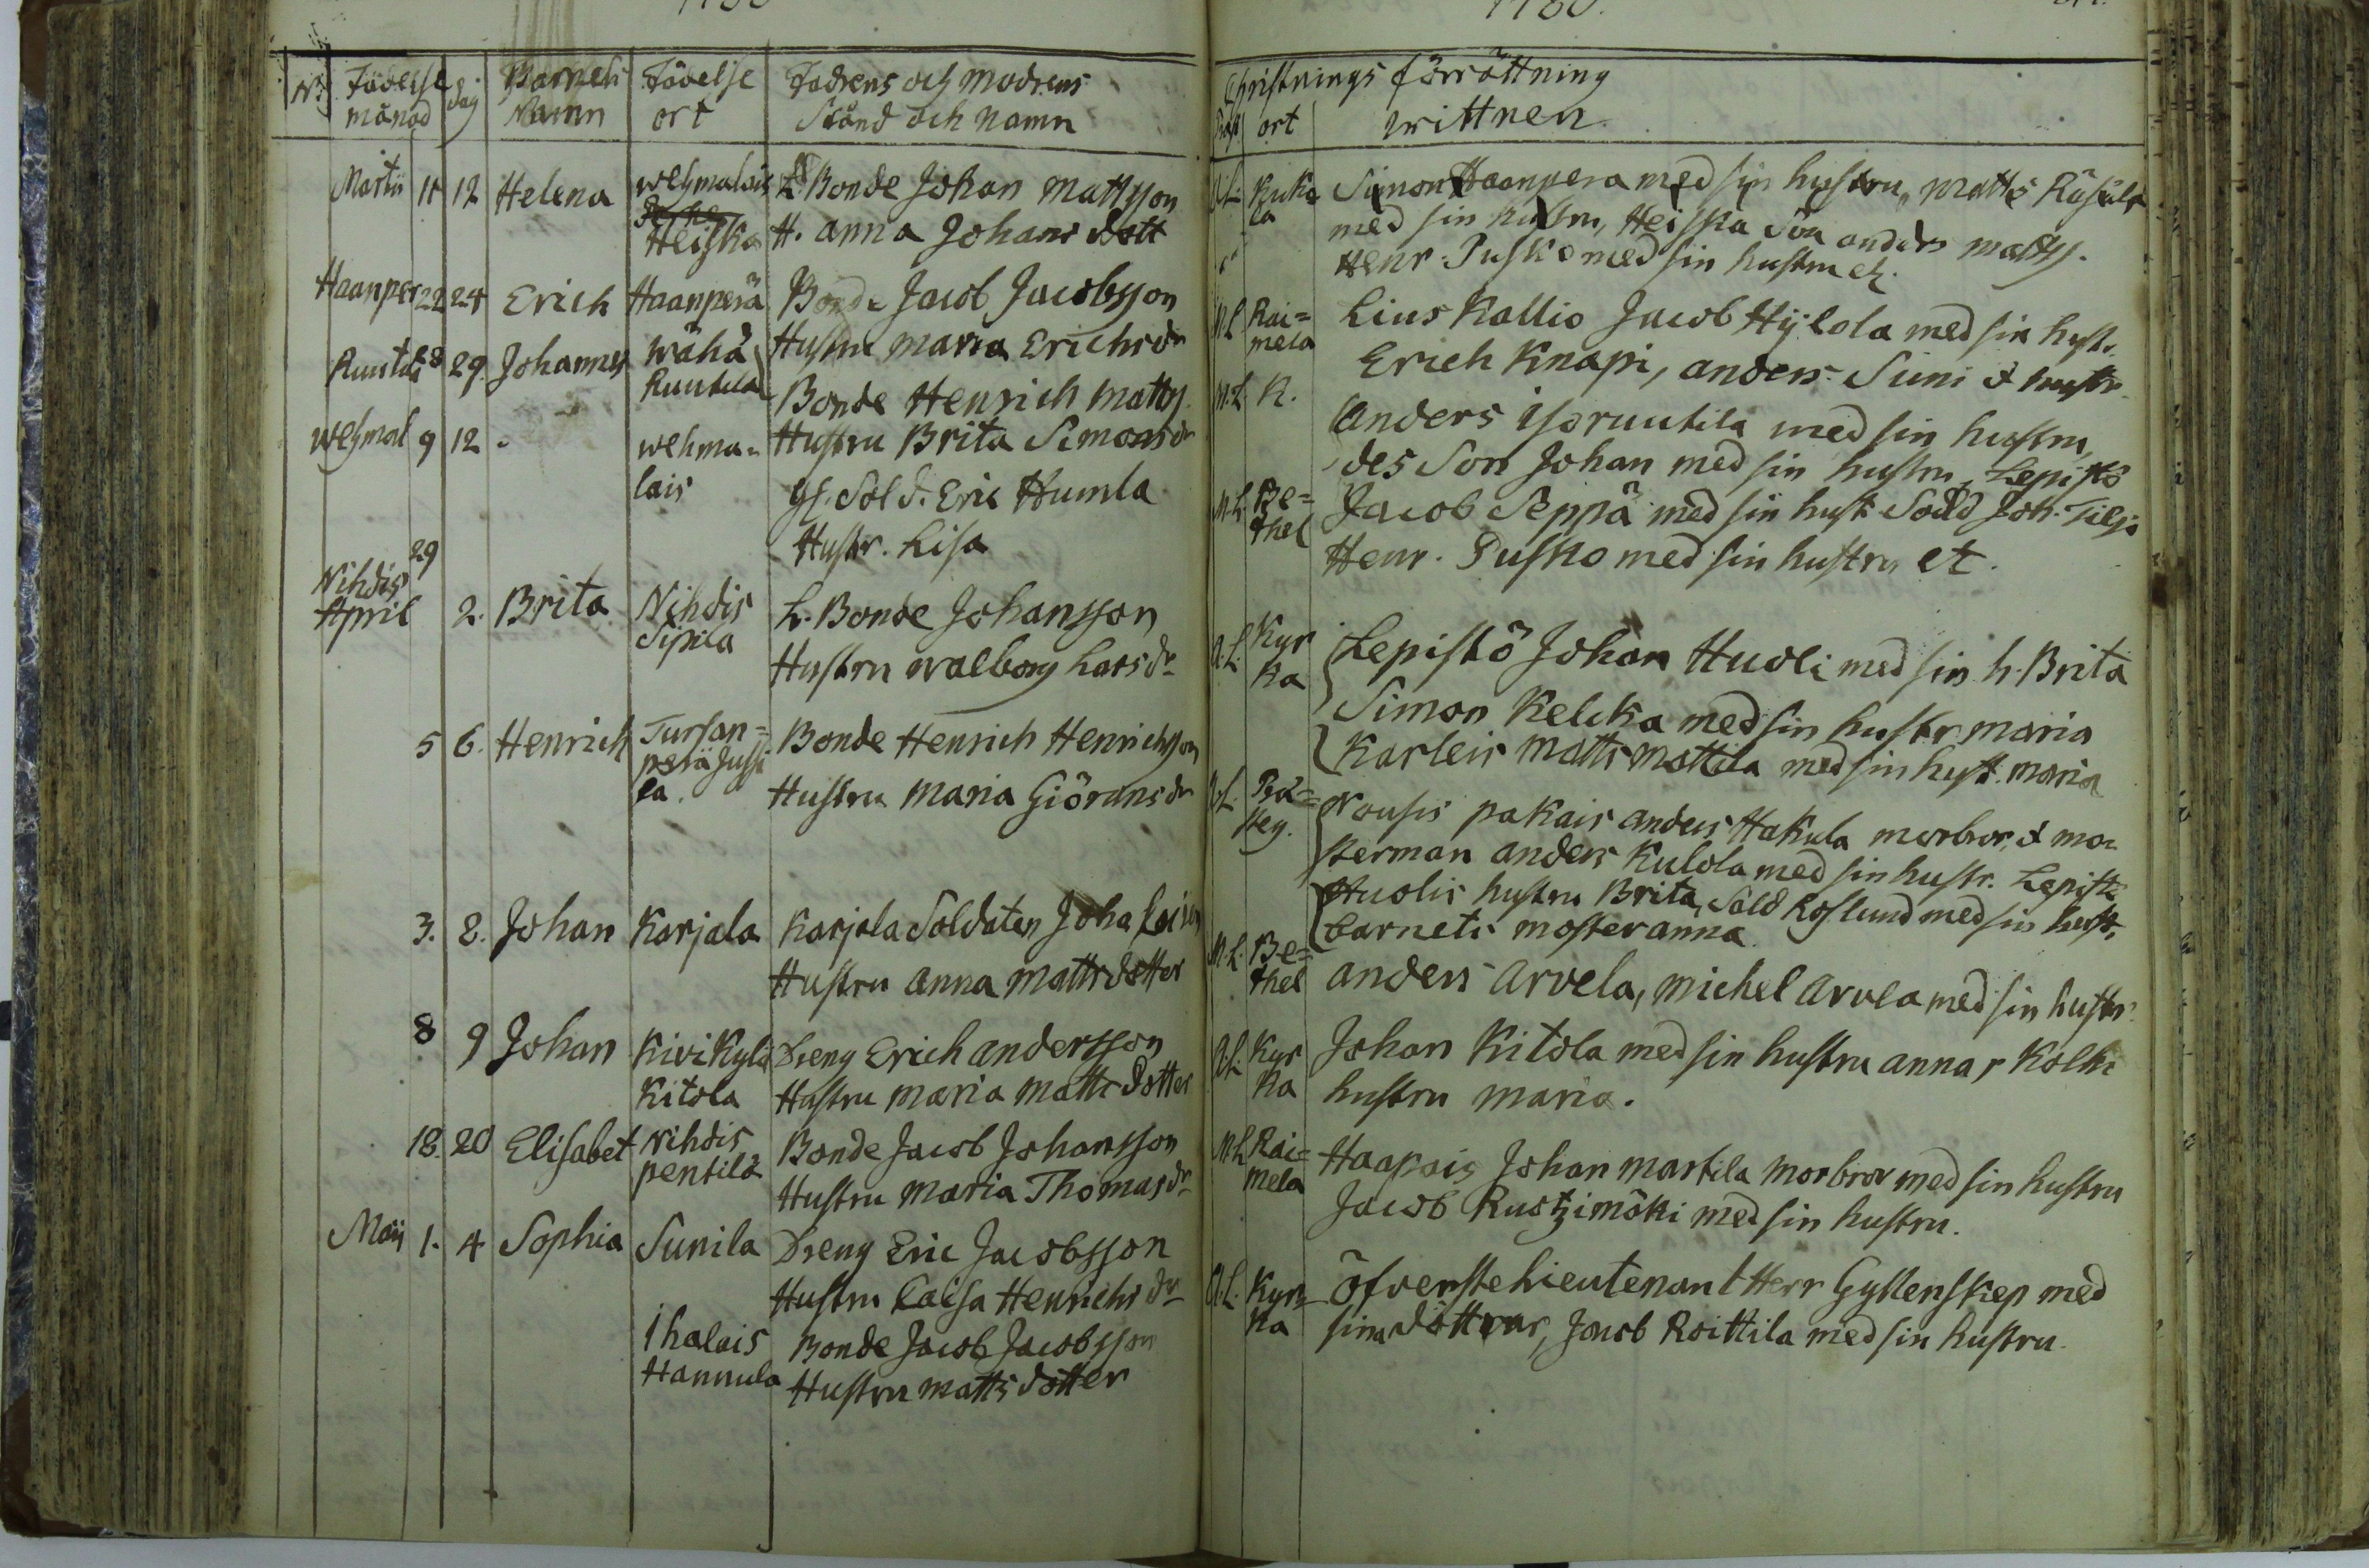 1780.
N:o Födelse månad dag Barnets Namn Födelse ort Fadrens och modrens Stånd och namn
Martii 11 12 Helena wehmalais Heiska L. Bonde Johan Mattsson
H. Anna Johans dott
Haanper 22 24 Erich Haanperä Bonde Jacob Jacobsson
Hustru Maria Erichs dr
Ruutil 28 29 Johannes Wähä Ruutila Bonde Henrich Matts.
Hustru Brita Simons dr
wehmal 9 12 - wehma=
lais
Sold. Eric Humla
Hustr. Lisa
29
Nihdis
April 2. Brita Nihdis Sipila L. Bonde Johansson
Hustru Walborg Lars dr
5 6. Henrich Tursan=
perä Jussi
la.
Bonde Henrich Henrichsson
Hustru Maria Giörans dr
3. 8. Johan Karjala Karjala Soldaten Joha
Hustru Anna Matts dotter
8 9 Johan Kivikylä Kitola Dreng Erich Andersson
Hustru Maria Matts dotter
18. 20 Elisabet Nihdis pentilä Bonde Jacob Johansson
Hustru Maria Thomas dr
Maij 1. 4 Sophia Sunila Dreng Eric Jacobsson
Hustru Caisa Henrichs dr
Ihalais Hannula Bonde Jacob Jacobsson
Hustru Matts dotter
1780.
Christnings förrättning
ort wittnen
Kukola Simon Haanpera med sin hustru, Matts
med sin hustru, Heiska Son anders Matts.
Henr. Pusko med sin hustru etc.
M.L. Rai=
mela
Lius Kallio Jacob Hÿlola med sin hustr.
Erich Knapi, anders Suni & hustr.
M.L. K. Anders Isoruutila med sin hustru,
des Son Johan med sin hustru, Lepistö
M.L. Be=
thel
Jacob Seppä med sin hust. Sold Joh. Silja
Henr. Pusko med sin hustru et.
A.L. Kyr
ka
Lepistö Johan Huoli med sin h. Brita
Simon Kelcka med sin hustr. Maria
Karleis Matts Mattila med sin hust. Maria
Nousis pakais anders Hakula morbror, & mo=
sterman anders Kulola med sin hustr. Lepistö
Huolis hustru Brita, Sold Roslund med sin hust,
barnets moster anna
M.L. Be=
thel
anders Arvela, Michel Arvela med sin hustr.
A.L. Kyr
ka
Johan Kitola med sin hustru anna, Kolki
hustru Maria.
M.L. Rai=
mela
Haapais Johan Martila Morbror med sin hustru
Jacob Rustzimäki med sin hustru.
A.L. Kyr=
ka
Öfverste Lieutenant Herr Gyllenskep med
sina döttrar, Jacob Roittila med sin hustru.